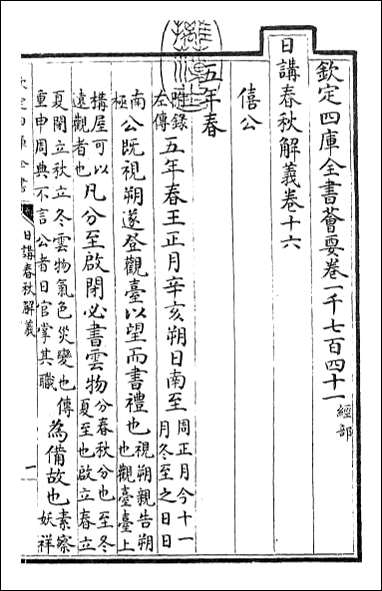 欽定四庫全書薈要卷一千七百四十一 經部
日講春秋解義卷十六
僖公
五年春
附錄左傳 五年春王正月辛亥朔日南至 周正月今十一月冬至之日日
南極 公既視朔遂登觀臺以望而書禮也 視朔親告朔也觀臺臺上
構屋可以遠觀者也 凡分至啟閉必書雲物 分春秋分也至冬夏至也啟立春立
夏閉立秋立冬雲物氣色災變也傳重申周典不言公者日官掌其職 為備故也 素察妖祥
日講春秋解義 一